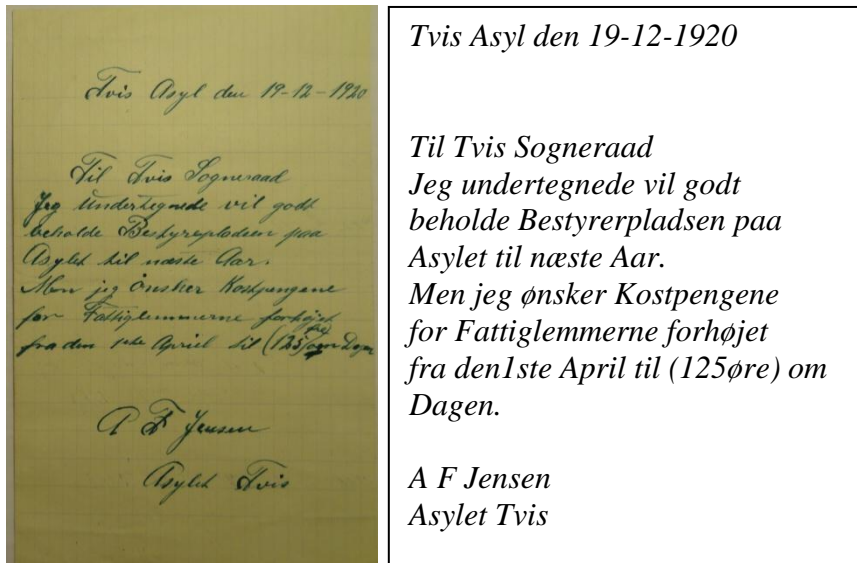 Tvis Asyl den 19-12-1920
Til Tvis Sogneraad
Jeg Undertegnede vil godt
beholde Bestyrepladsen paa
Asylet til næste Aar.
Men jeg önsker Kostpengene
for Fattiglemmerne forhøjet
fra den 1ste April til (125 øre) om Dagen
A F Jensen
Asylet Tvis
Tvis Asyl den 19-12-1920
Til Tvis Sogneraad
Jeg undertegnede vil godt
beholde Bestyrerpladsen paa
Asylet til næste Aar.
Men jeg ønsker Kostpengene
for Fattiglemmerne forhøjet
fra den1ste April til (125øre) om
Dagen.
A F Jensen
Asylet Tvis